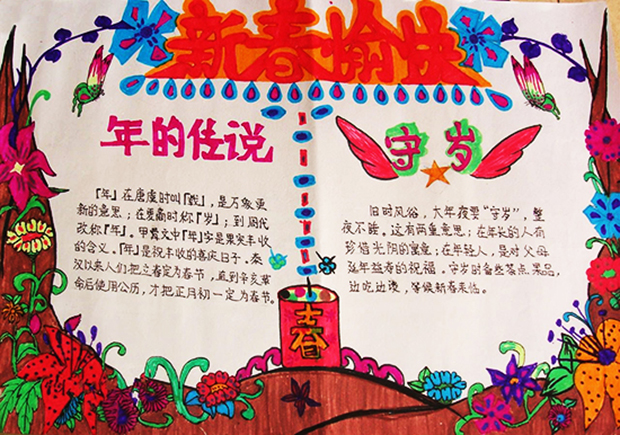 新春愉快
年的传说
「年」在唐虞时叫「载」，是万象更
新的意思；在夏商时称「岁」；到周代
改称「年」。甲骨文中「年」字是果实丰收
的含义。「年」是祝丰收的喜庆日子。秦
汉以来人们把立春定为春节，直到辛亥革
命后使用公历，才把正月初一定为春节。
守岁
旧时风俗，大年夜要“守岁”，整
夜不睡。这有两重意思：在年长的人有
珍惜光阴的寓意；在年轻人，是对父母
延年益寿的祝福。守岁时备些茶点果品，
边吃边谈，等候新春来临。
春